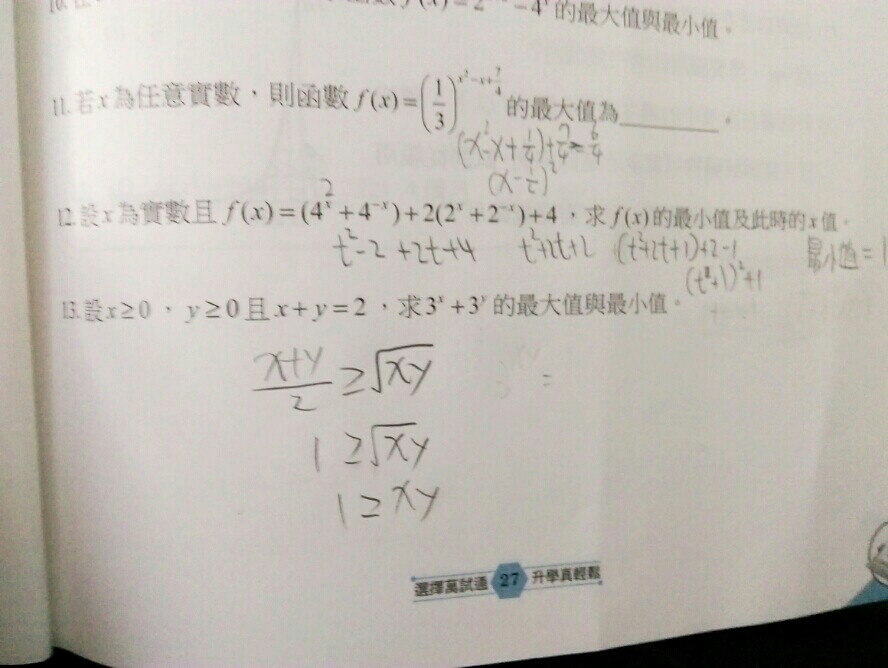 f(x)=2 -4^x 的最大值與最小值。
11. 若x為任意實數，則函數 f(x)=(1/3)^(x²-x+7/4) 的最大值為______。
(x²-x+1/4)+7/4 6/4
(x-1/2)²
2
12. 設x為實數且 f(x)=(4^x+4^-x)+2(2^x+2^-x)+4，求f(x)的最小值及此時的x值。
t²-2+2t+4 t²+2t+2 (t²+2t+1)+2-1 最小值=1
(t+1)²+1
13. 設x≥0，y≥0且x+y=2，求3^x+3^y的最大值與最小值。
(x+y)/2 ≥ √xy
=
1 ≥ √xy
1 ≥ xy
選擇萬試通 27 升學真輕鬆